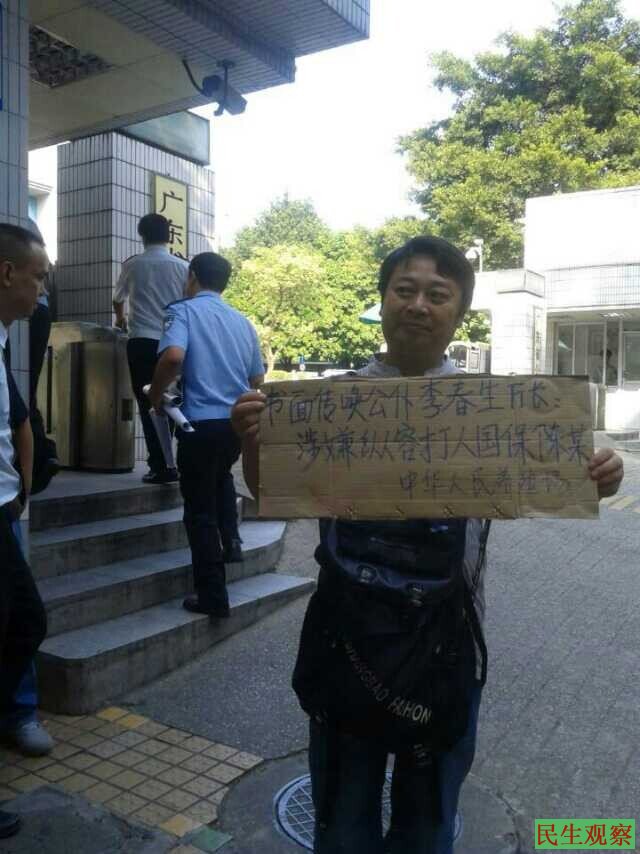 广东
书面传唤公仆李春生厅长:
涉嫌纵容打人国保陈某
中华人民
HONGBAO FASHION
民生观察